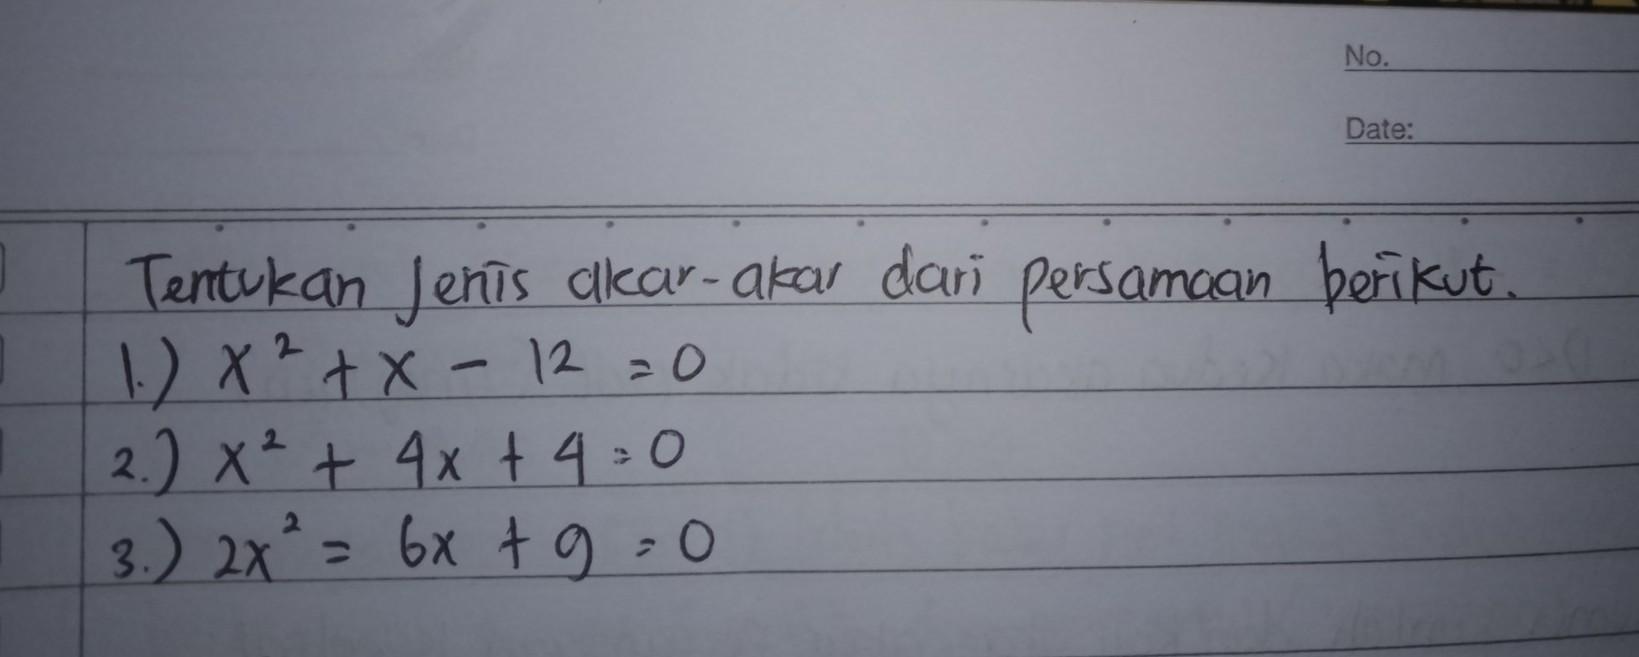 No.
Date:
Tentukan jenis akar-akar dari persamaan berikut.
1.) x² + x - 12 = 0
2.) x² + 4x + 4 = 0
3.) 2x² = 6x + 9 = 0